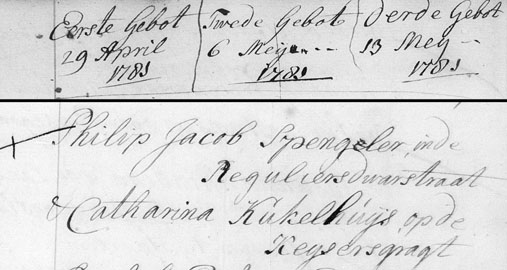 Eerste Gebot
29 April
1781
Twede Gebot
6 Mey
1781
Derde Gebot
13 Mey
1781
Philip Jacob Spengeler, inde
Reguliersdwarstraat
& Catharina Kukelhuijs op de
Keysersgragt